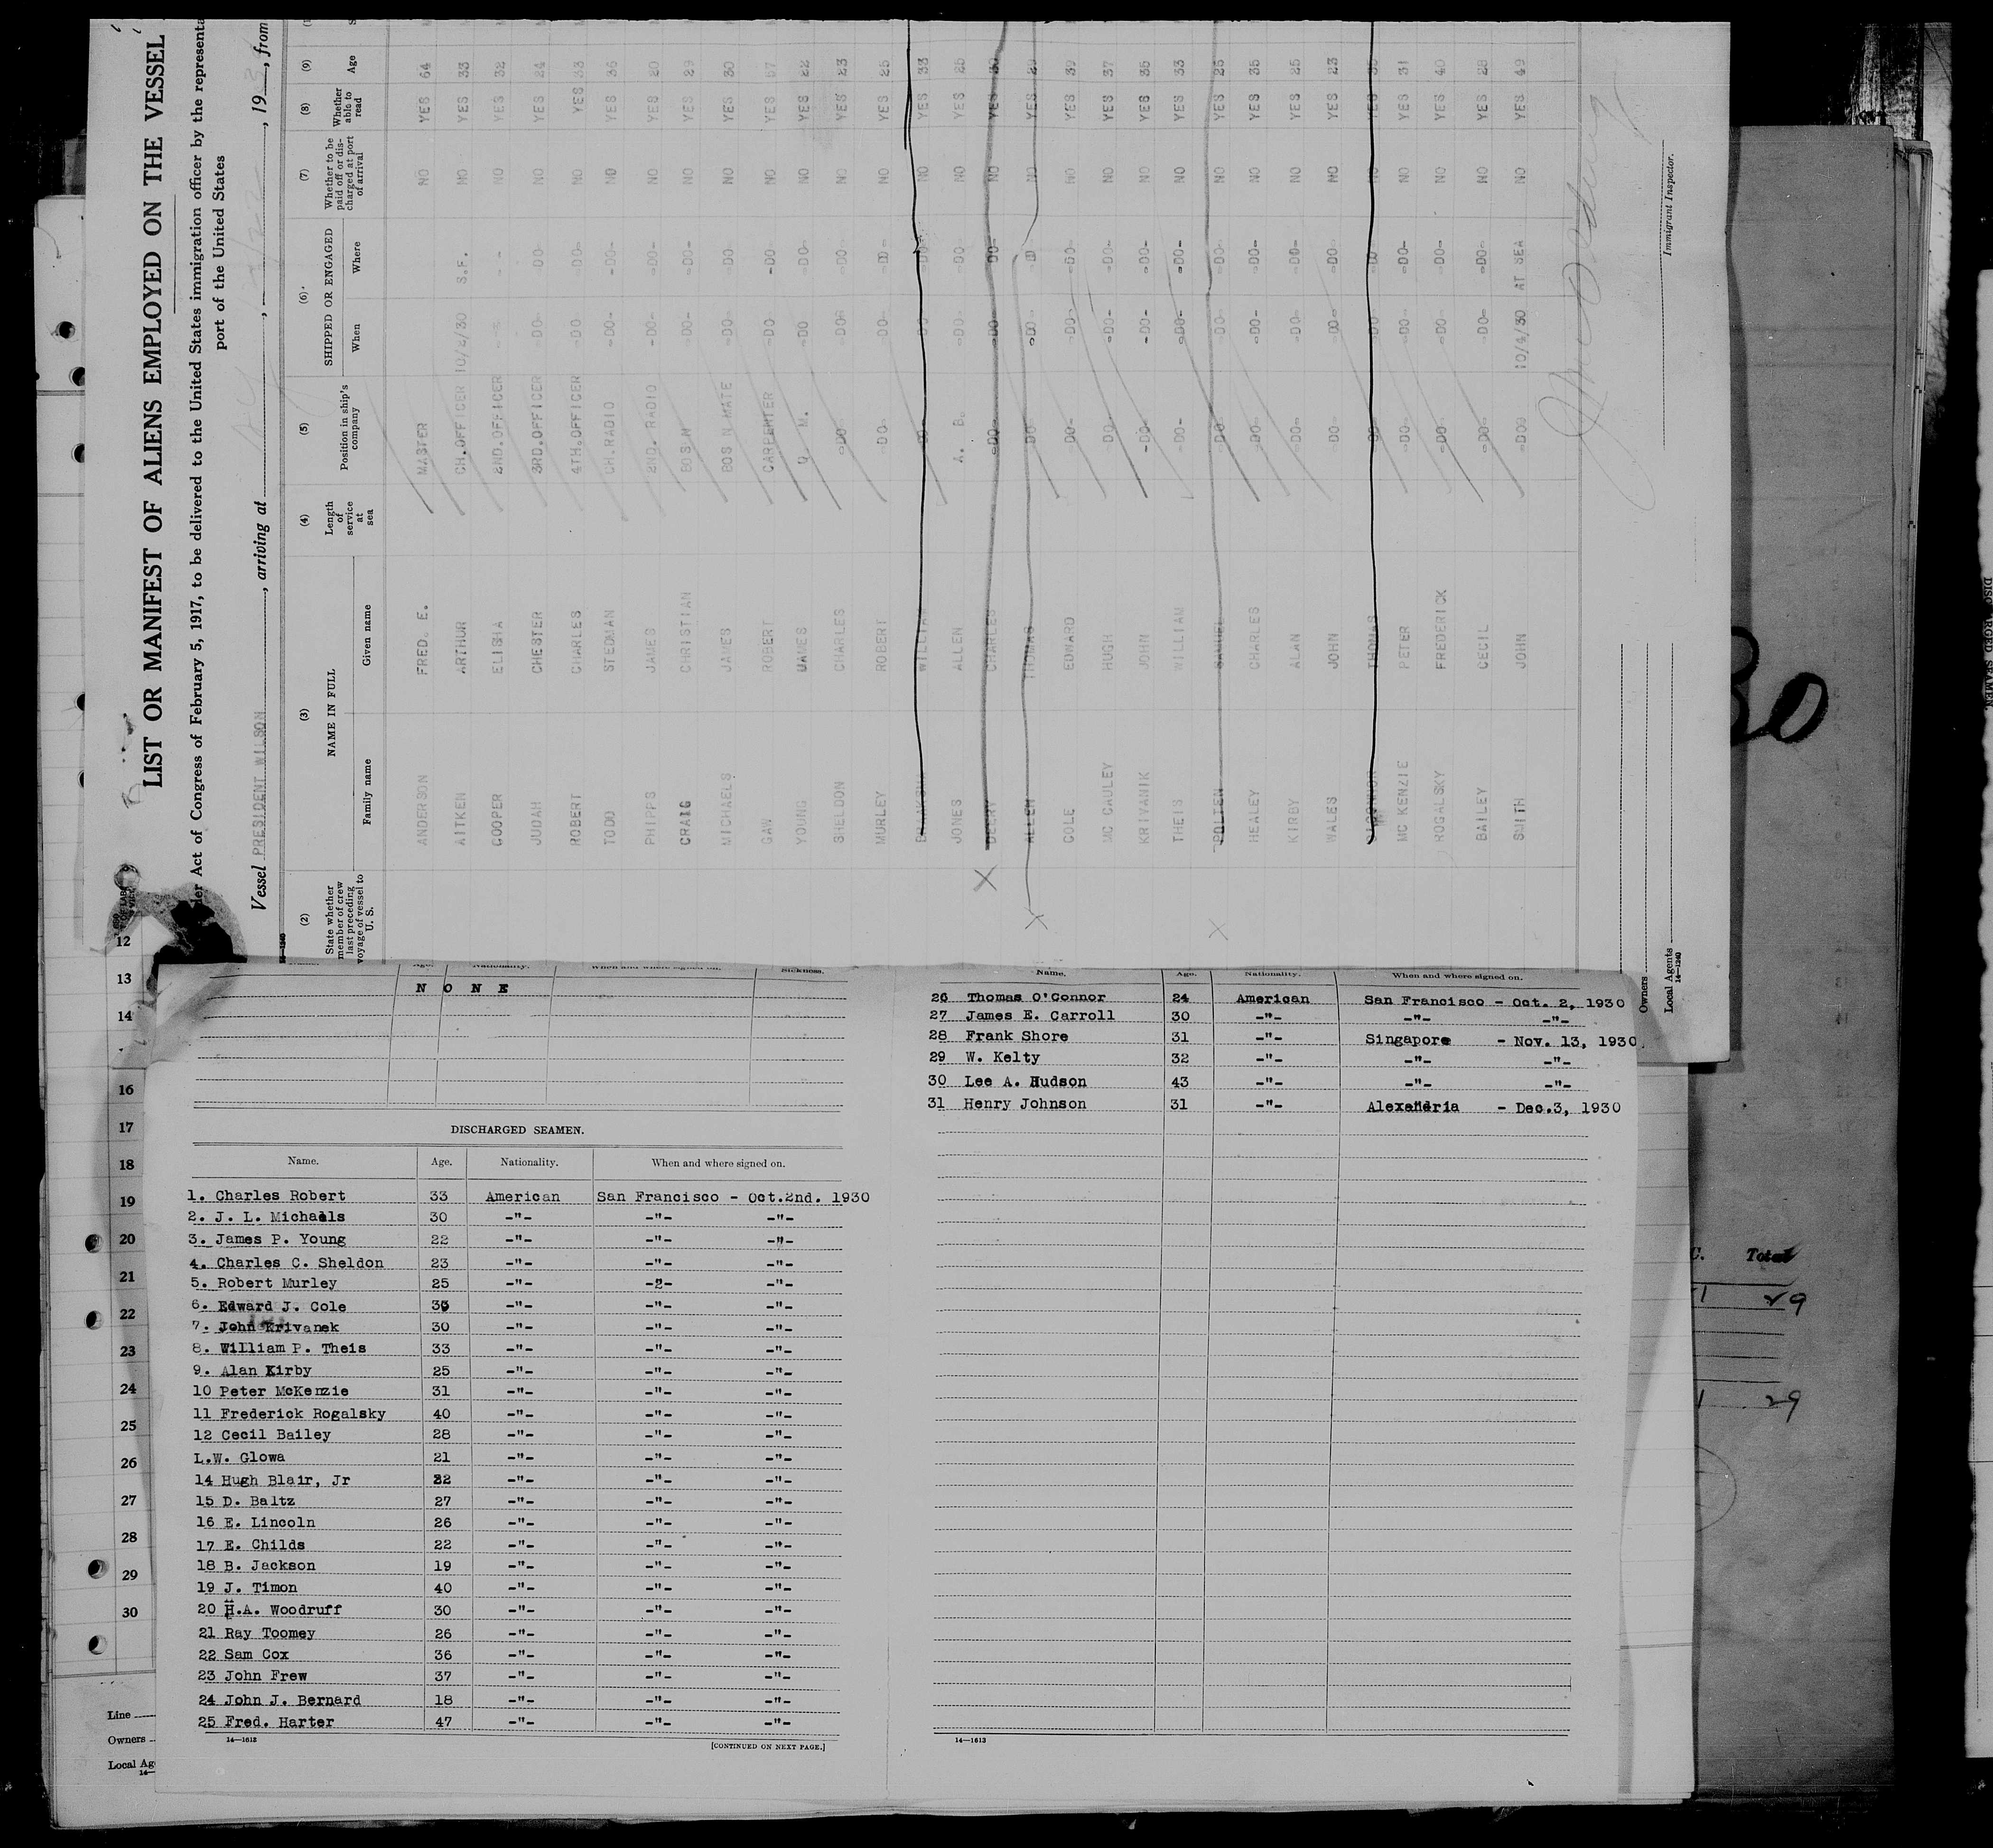 LIST OR MANIFEST OF ALIENS EMPLOYED ON THE VESSEL
Act of Congress of February 5, 1917, to be delivered to the United States immigration officer by the
port of the United States
Vessel PRESIDENT WILSON, arriving at , , 19 , from
(2) (3) (4) (5) (6) (7) (8) (9)
State whether member of crew last preceding voyage of vessel to U. S.
NAME IN FULL
Family name Given name
Length of service at sea
Position in ship's company
SHIPPED OR ENGAGED
When Where
Whether to be paid off or discharged at port of arrival
Whether able to read
Age
ANDERSON FRED. E. MASTER NO YES 64
AITKEN ARTHUR CH.OFFICER 10/2/30 S.F. NO YES 33
COOPER ELISHA 2ND.OFFICER NO YES 32
JUDAH CHESTER 3RD.OFFICER -DO- DO NO YES 24
ROBERT CHARLES 4TH.OFFICER -DO DO- NO YES 33
TODD STEDMAN CH.RADIO -DO- -DO- NO YES 36
PHIPPS JAMES 2ND. RADIO -DO- -DO- NO YES 20
CRAIG CHRISTIAN BOS'N -DO- -DO- NO YES 29
MICHAELS JAMES BOS'N MATE -DO- -DO- NO YES 30
GAW ROBERT CARPENTER -DO -DO- NO YES 57
YOUNG JAMES Q. M. -DO -DO- NO YES 22
SHELDON CHARLES -DO- -DO- -DO- NO YES 23
MURLEY ROBERT -DO- -DO- NO YES 25
WILLIAM -DO- NO YES 33
JONES ALLEN A. B. -DO- -DO NO YES 25
CHARLES -DO- -DO- DO- NO YES 30
ALLEN THOMAS DO- -DO- NO YES 29
COLE EDWARD -DO- -DO- -DO- NO YES 39
MC CAULEY HUGH -DO- -DO- -DO- NO YES 37
KRIVANIK JOHN -DO- -DO- -DO- NO YES 35
THEIS WILLIAM -DO- -DO- -DO- NO YES 33
BOLTEN SAMUEL -DO -DO- -DO- NO YES 25
HEALEY CHARLES -DO- -DO- -DO- NO YES 35
KIRBY ALAN -DO- -DO- -DO- NO YES 25
WALES JOHN -DO- -DO- -DO- NO YES 23
THOMAS -DO- NO YES
MC KENZIE PETER -DO- -DO- -DO- NO YES 31
ROGALSKY FREDERICK -DO- -DO- -DO- NO YES 40
BAILEY CECIL -DO- -DO- -DO- NO YES 28
SMITH JOHN -DO- 10/4/30 AT SEA NO YES 49
Immigrant Inspector.
Owners
Local Agents
14—1240
12
13
14
16
17
18
19
20
21
22
23
24
25
26
27
28
29
30
Line
Owners
Local Ag
14—
Age. Nationality. When and where signed on. Sickness.
N O N E
DISCHARGED SEAMEN.
Name. Age. Nationality. When and where signed on.
1. Charles Robert 33 American San Francisco - Oct.2nd. 1930
2. J. L. Michaels 30 -"- -"- -"-
3. James P. Young 22 -"- -"- -"-
4. Charles C. Sheldon 23 -"- -"- -"-
5. Robert Murley 25 -"- -2- -"-
6. Edward J. Cole -"- -"- -"-
7. John Krivanek 30 -"- -"- -"-
8. William P. Theis 33 -"- -"- -"-
9. Alan Kirby 25 -"- -"- -"-
10 Peter McKenzie 31 -"- -"- -"-
11 Frederick Rogalsky 40 -"- -"- -"-
12 Cecil Bailey 28 -"- -"- -"-
L.W. Glowa 21 -"- -"- -"-
14 Hugh Blair, Jr 22 -"- -"- -"-
15 D. Baltz 27 -"- -"- -"-
16 E. Lincoln 26 -"- -"- -"-
17 E. Childs 22 -"- -"- -"-
18 B. Jackson 19 -"- -"- -"-
19 J. Timon 40 -"- -"- -"-
20 H.A. Woodruff 30 -"- -"- -"-
21 Ray Toomey 26 -"- -"- -"-
22 Sam Cox 36 -"- -"- -"-
23 John Frew 37 -"- -"- -"-
24 John J. Bernard 18 -"- -"- -"-
25 Fred. Harter 47 -"- -"- -"-
14—1613
[CONTINUED ON NEXT PAGE.]
Name. Age. Nationality. When and where signed on.
26 Thomas O'Connor 24 American San Francisco - Oct. 2, 1930
27 James E. Carroll 30 -"- -"- -"-
28 Frank Shore 31 -"- Singapore - Nov. 13, 1930
29 W. Kelty 32 -"- -"- -"-
30 Lee A. Hudson 43 -"- -"- -"-
31 Henry Johnson 31 -"- Alexandria - Dec.3, 1930
14—1613
30
C. Total
1 29
1 29
DISCHARGED SEAMEN.